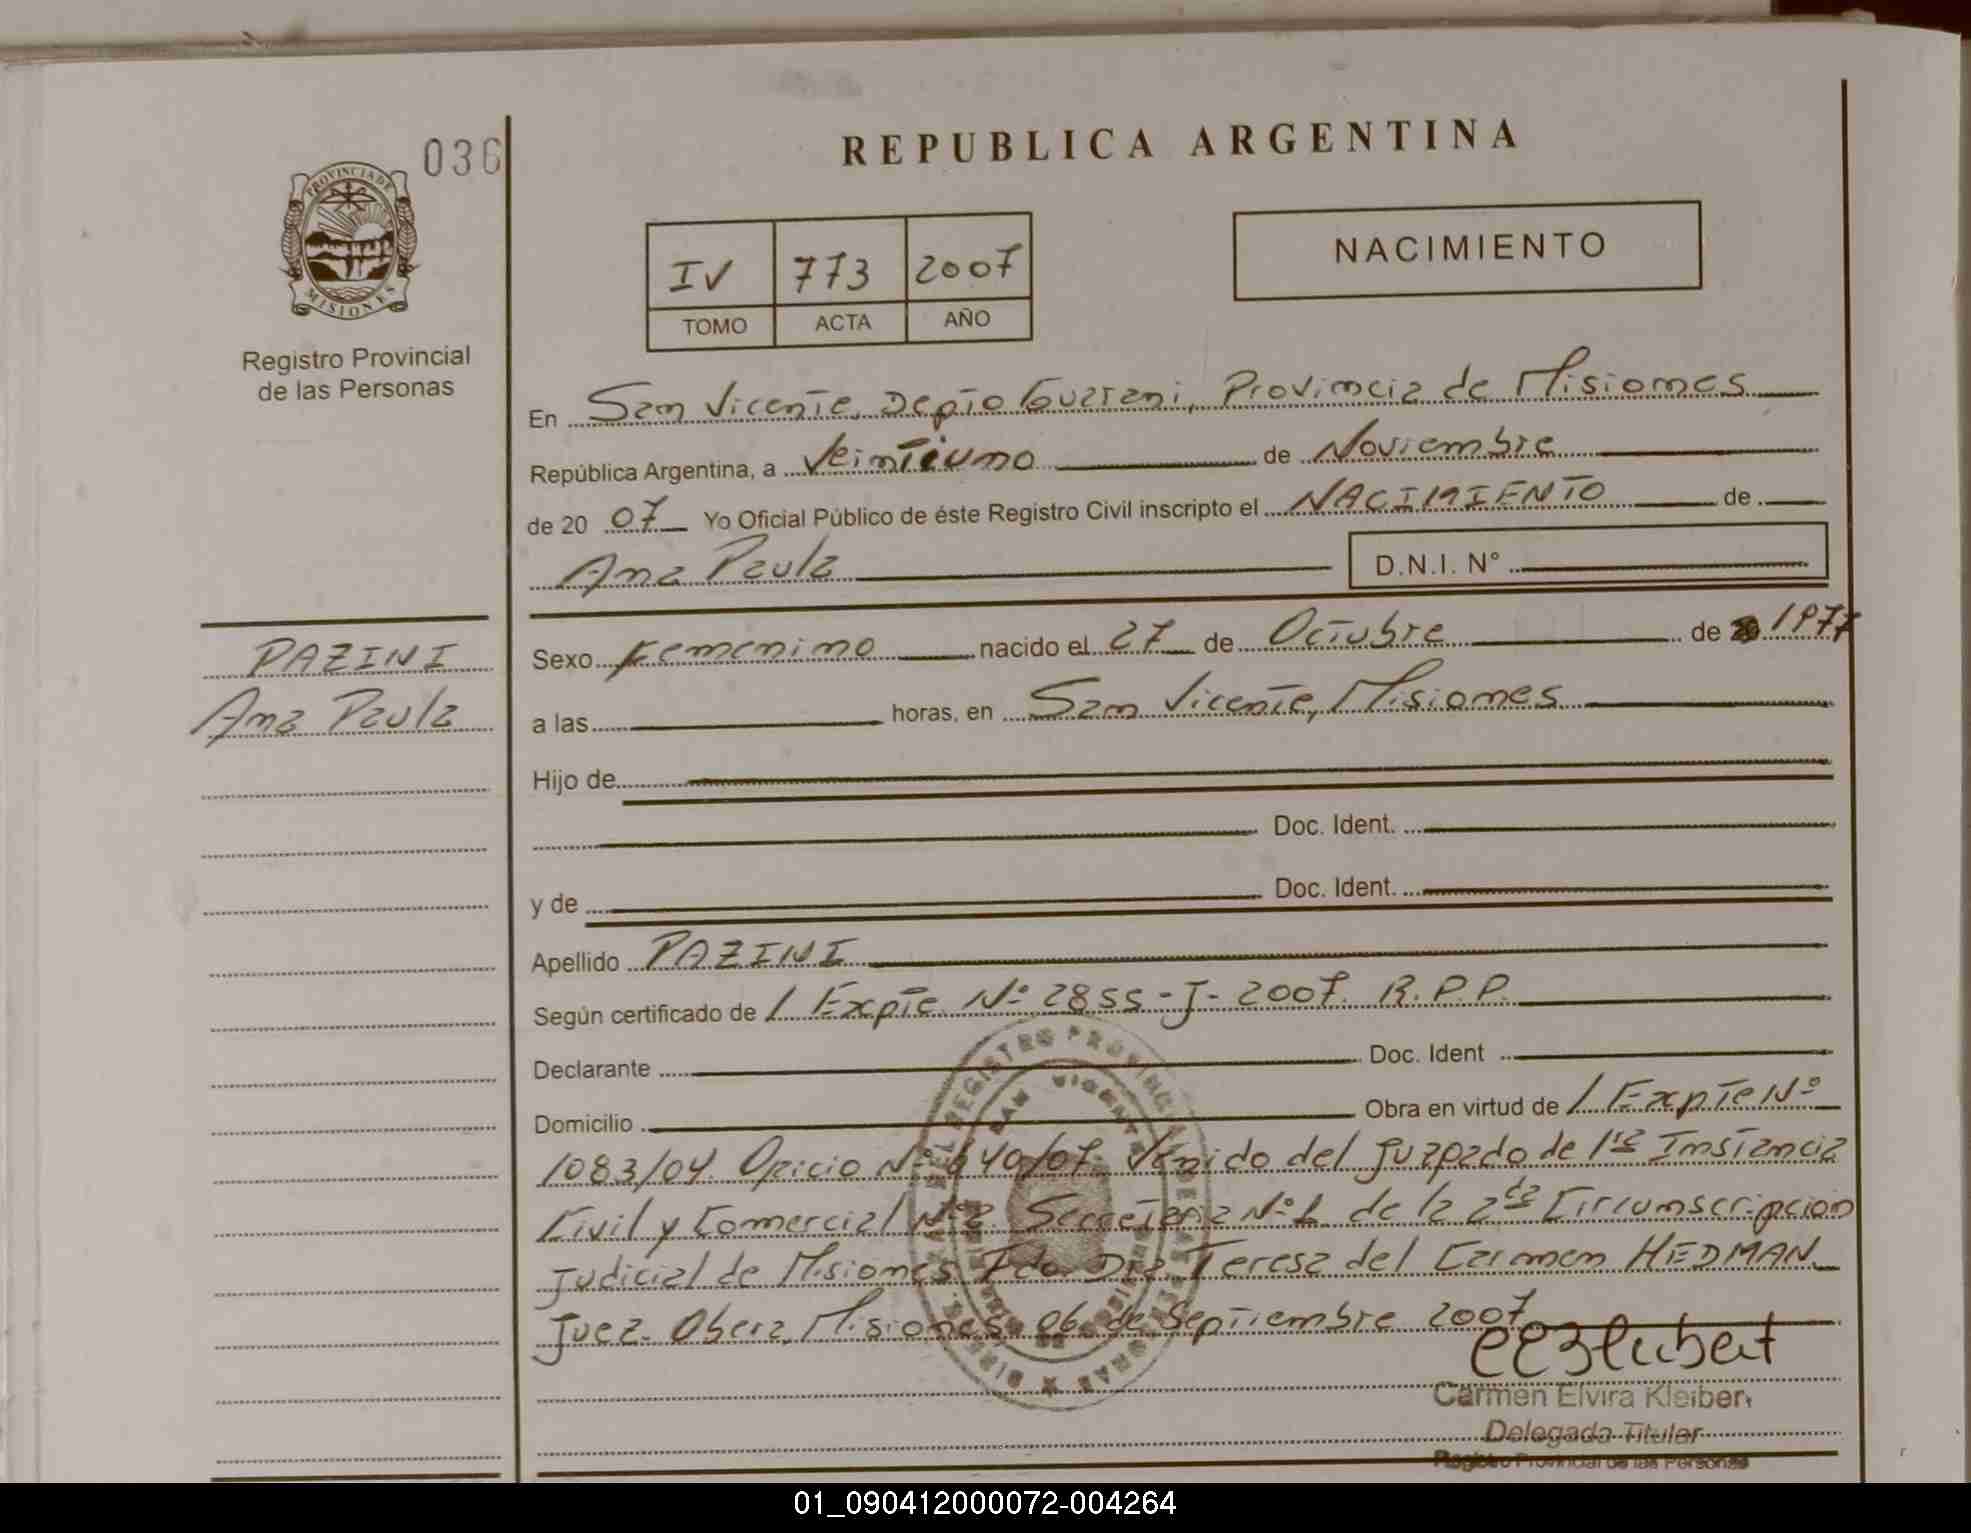 REPUBLICA ARGENTINA
036
PROVINCIA DE
MISIONES
Registro Provincial
de las Personas
IV 773 2007
TOMO ACTA AÑO
NACIMIENTO
En San Vicente, Depto Guarani, Provincia de Misiones
República Argentina, a Veintiuno de Noviembre
de 20 07 Yo Oficial Público de éste Registro Civil inscripto el NACIMIENTO de
Ana Paula D.N.I. N°
PAZINI
Ana Paula
Sexo Femenino nacido el 27 de Octubre de 1977
a las horas, en San Vicente, Misiones
Hijo de
Doc. Ident.
y de Doc. Ident.
Apellido PAZINI
Según certificado de / Expte Nº 2855-J-2007. R.P.P.
Declarante Doc. Ident
Domicilio Obra en virtud de / Expte Nº
1083/04. Oficio Nº 640/07. Venido del Juzgado de 1ra Instancia
Civil y Comercial Nº2 Secretaria Nº1 de la 2da Circunscripcion
Judicial de Misiones Fdo. Dra. Teresa del Carmen HEDMAN
Juez. Obera, Misiones, 06 de Septiembre 2007
Carmen Elvira Kleibert
Delegada Titular
Registro Provincial de las Personas
01_090412000072-004264